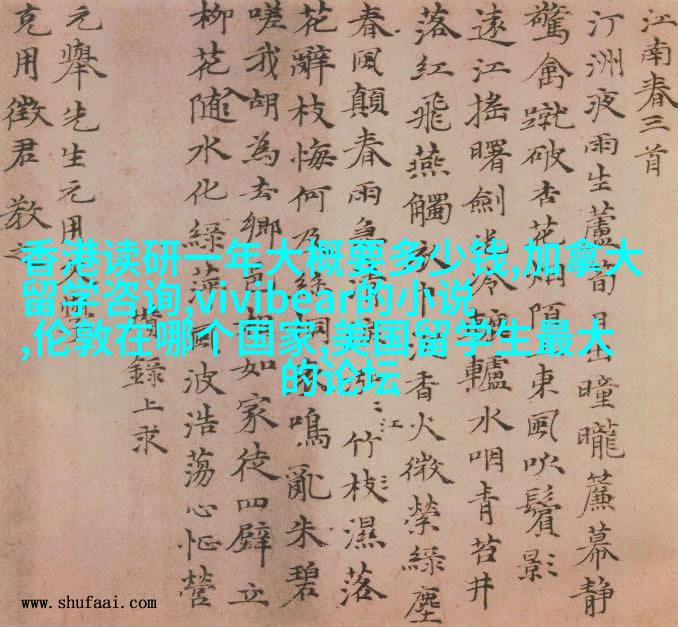 香港读研一年大概要多少钱,加拿大
留学咨询,vivibear的小说
,伦敦在哪个国家,美国留学生最大
的论坛
江南春三首
汀洲夜雨生蘆筍日曈曨簾幕靜
驚禽蹴破杏花烟陌東風吹鬢影
遠江搖曙劍光冷轆轤水咽青苔井
落紅飛燕觸衣巾香火微縈綠塵
春風顛春雨急江竹枝濕落
花辭枝悔何及絲桐鳴亂朱碧
嗟我胡為去鄉邑相如家徒四壁立
柳花隨水化綠萍風波浩蕩心怔營
瓚錄上求
元舉先生元用文學
克用徵君教之
www.shufaai.com